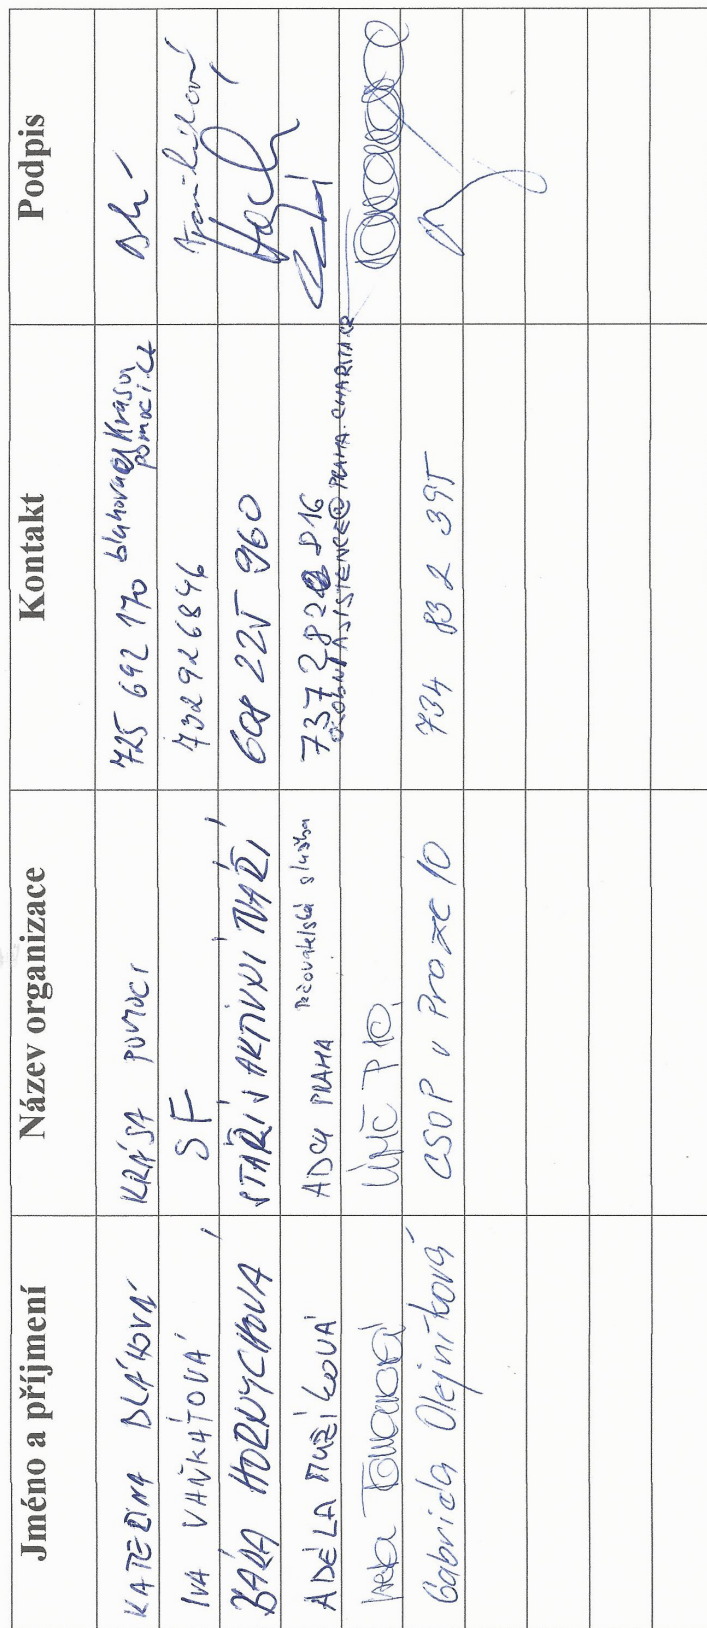 Jméno a příjmení Název organizace Kontakt Podpis
KATEŘINA BLÁHOVÁ KRÁSA POMOCI 725 692 170 blahova@krasapomoci.cz
IVA VAŇKÁTOVÁ SF 732926846
BÁRA HORNYCHOVÁ STÁŘÍ V AKTIVNÍ TVÁŘÍ 608 225 960
ADÉLA MUŽÍKOVÁ ADCH PRAHA Pečovatelská služba 737 282 816 OSOBNIASISTENCE@PRAHA.CHARITA.CZ
Tomanová ÚMČ P10
Gabriela Olejníková CSOP v Praze 10 734 832 395